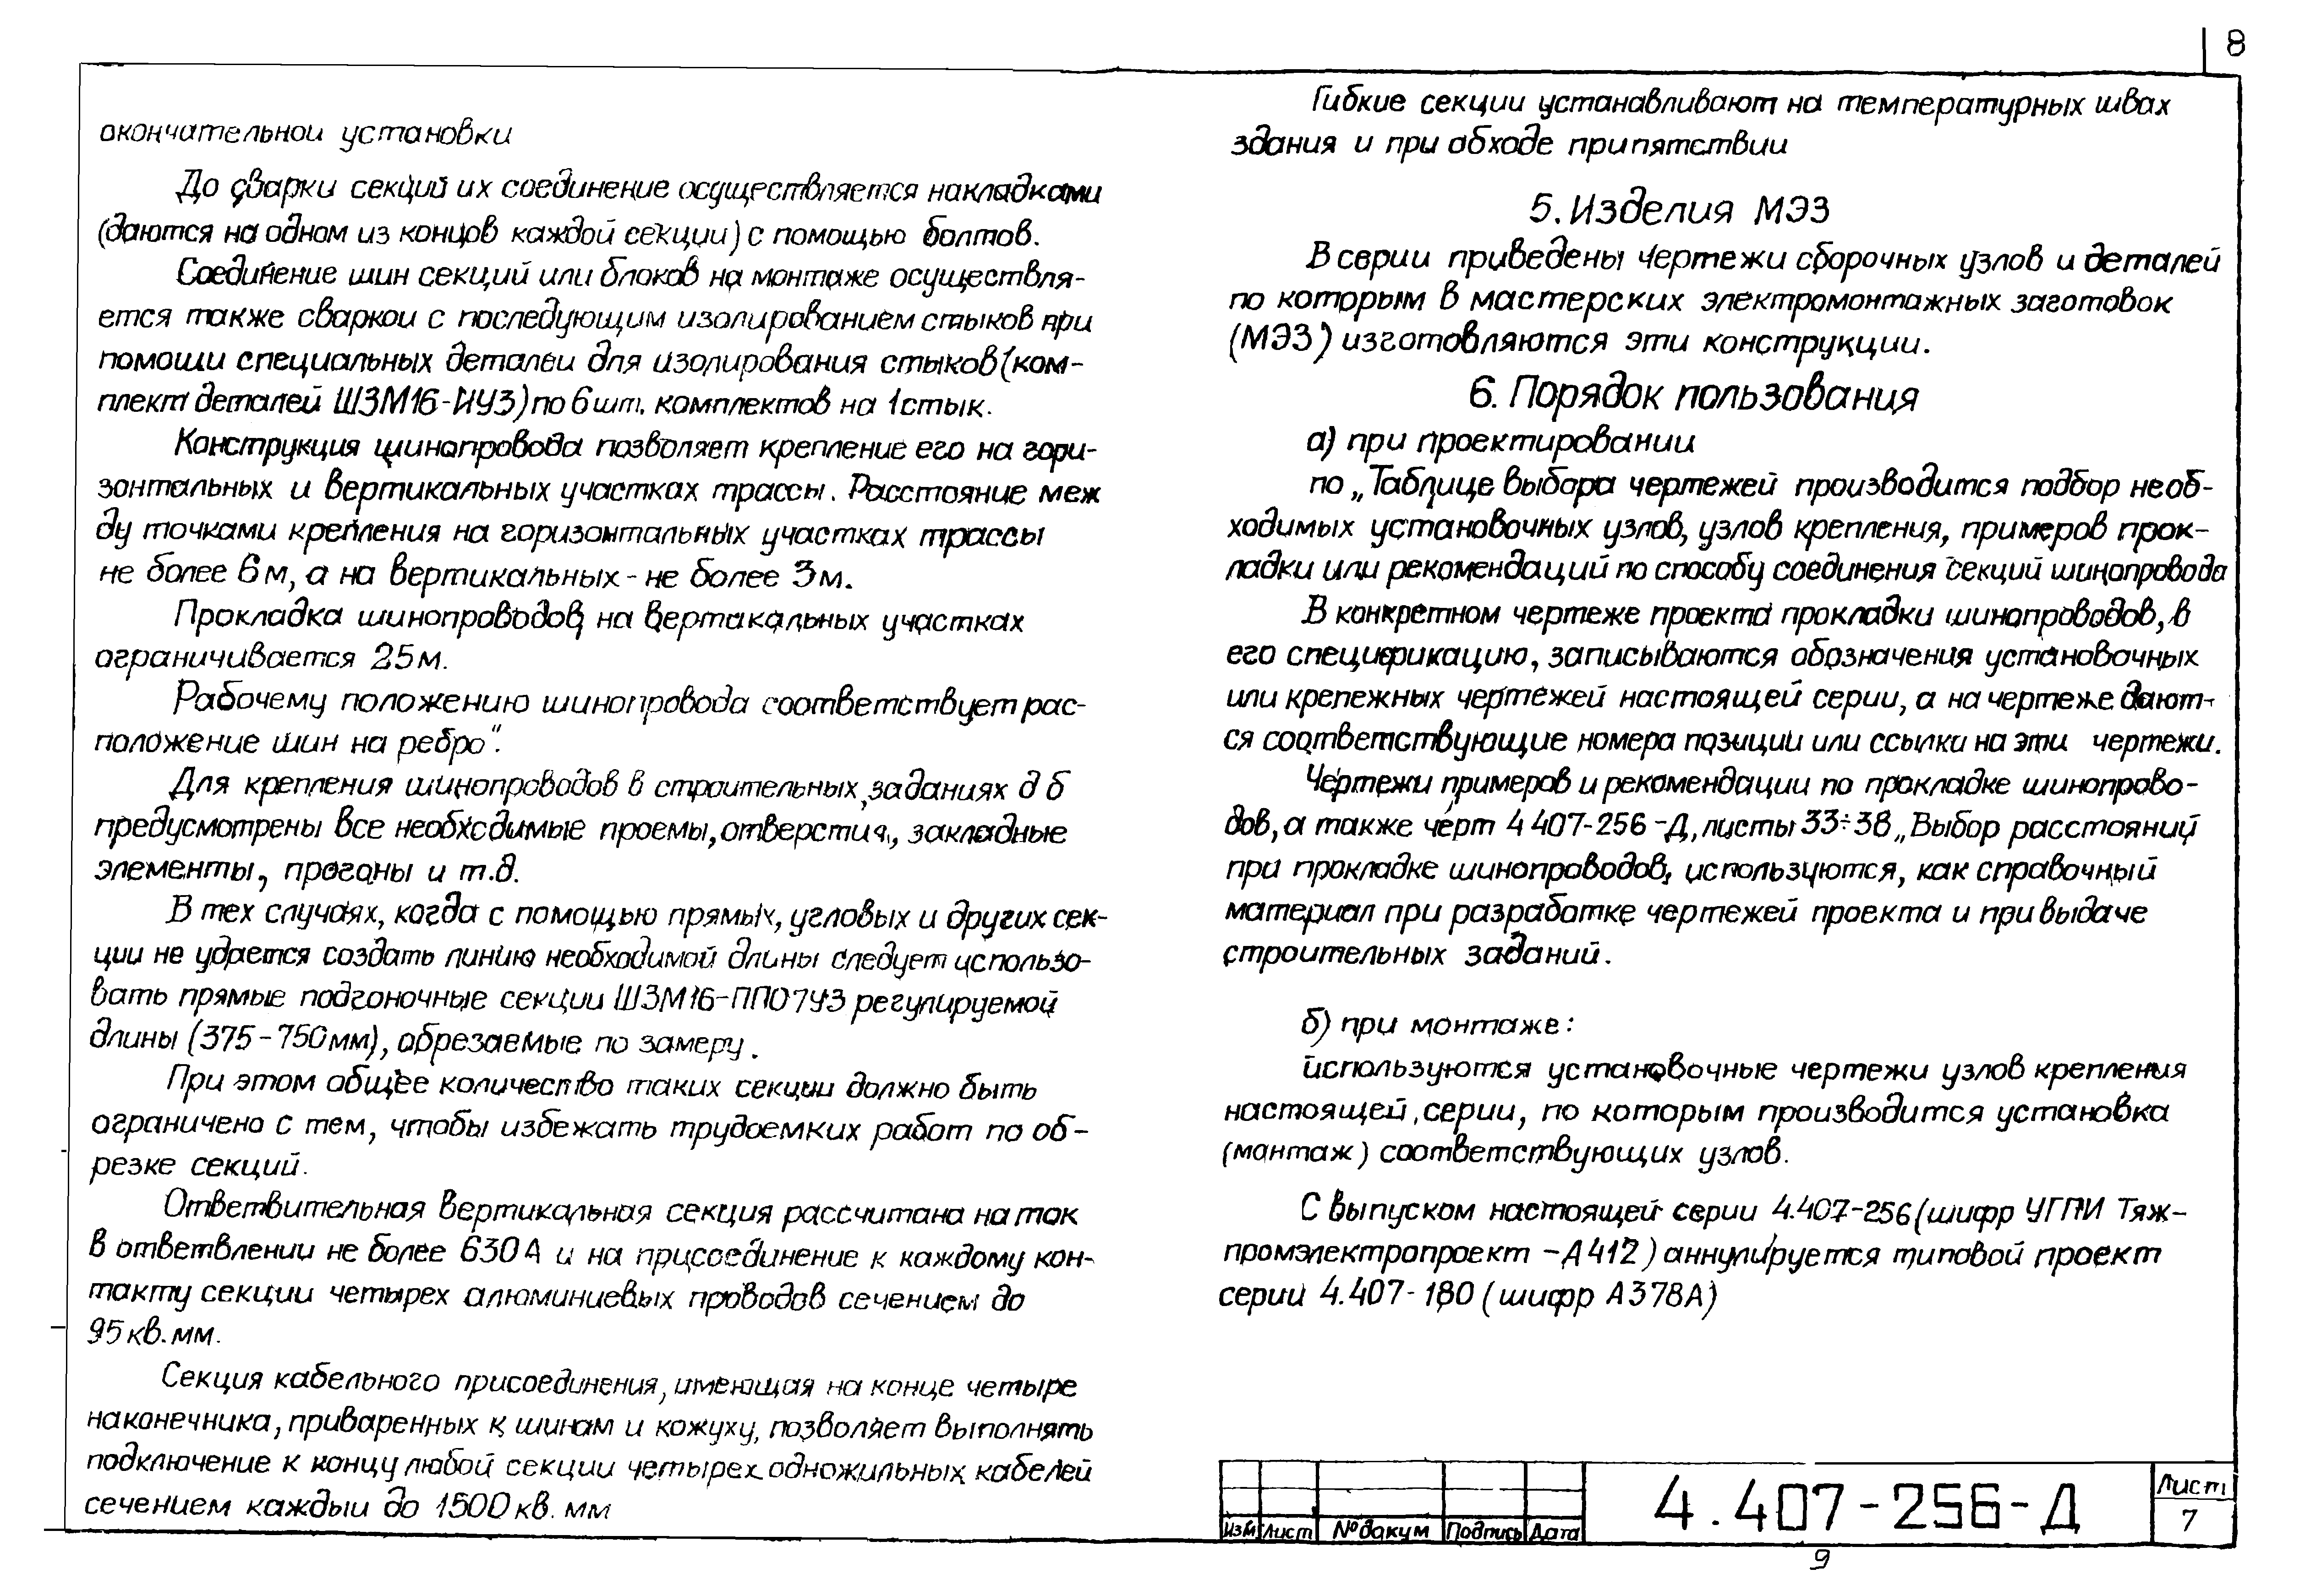 8
окончательной установки
До сварки секций их соединение осуществляется накладками
(даются на одном из концов каждой секции) с помощью болтов.
Соединение шин секций или блоков на монтаже осуществля-
ется также сваркой с последующим изолированием стыков при
помощи специальных деталей для изолирования стыков (ком-
плект деталей ШЗМ16-ИУЗ) по 6 шт. комплектов на 1 стык.
Конструкция шинопровода позволяет крепление его на гори-
зонтальных и вертикальных участках трассы. Расстояние меж
ду точками крепления на горизонтальных участках трассы
не более 6 м, а на вертикальных - не более 3 м.
Прокладка шинопроводов на вертикальных участках
ограничивается 25 м.
Рабочему положению шинопровода соответствует рас-
положение шин на ребро".
Для крепления шинопроводов в строительных заданиях д б
предусмотрены все необходимые проемы, отверстия, закладные
элементы, прогоны и т.д.
В тех случаях, когда с помощью прямых, угловых и других сек-
ции не удается создать линию необходимой длины следует использо-
вать прямые подгоночные секции ШЗМ16-ПП07УЗ регулируемой
длины (375-750 мм), обрезаемые по замеру.
При этом общее количество таких секции должно быть
ограничено с тем, чтобы избежать трудоемких работ по об-
резке секций.
Ответвительная вертикальная секция рассчитана на ток
в ответвлении не более 630 А и на присоединение к каждому кон-
такту секции четырех алюминиевых проводов сечением до
95 кв. мм.
Секция кабельного присоединения, имеющая на конце четыре
наконечника, приваренных к шинам и кожуху, позволяет выполнять
подключение к концу любой секции четырех одножильных кабелей
сечением каждый до 1500 кв. мм
Гибкие секции устанавливают на температурных швах
здания и при обходе припятствии
5. Изделия МЭЗ
В серии приведены чертежи сборочных узлов и деталей
по которым в мастерских электромонтажных заготовок
(МЭЗ) изготовляются эти конструкции.
6. Порядок пользования
а) при проектировании
по „Таблице выбора чертежей производится подбор необ-
ходимых установочных узлов, узлов крепления, примеров прок-
ладки или рекомендаций по способу соединения секций шинопровода
В конкретном чертеже проекта прокладки шинопроводов, в
его спецификацию, записываются обозначения установочных
или крепежных чертежей настоящей серии, а на чертеже дают-
ся соответствующие номера позиции или ссылки на эти чертежи.
Чертежи примеров и рекомендации по прокладке шинопрово-
дов, а также черт 4 407-256-Д, листы 33÷38 „Выбор расстояний
при прокладке шинопроводов, используются, как справочный
материал при разработке чертежей проекта и при выдаче
строительных заданий.
б) при монтаже:
используются установочные чертежи узлов крепления
настоящей серии, по которым производится установка
(монтаж) соответствующих узлов.
С выпуском настоящей серии 4.407-256 (шифр УГПИ Тяж-
промэлектропроект -А412) аннулируется типовой проект
серии 4.407-180 (шифр А378А)
Изм Лист № докум Подпись Дата
4.407-256-Д
Лист
7
9